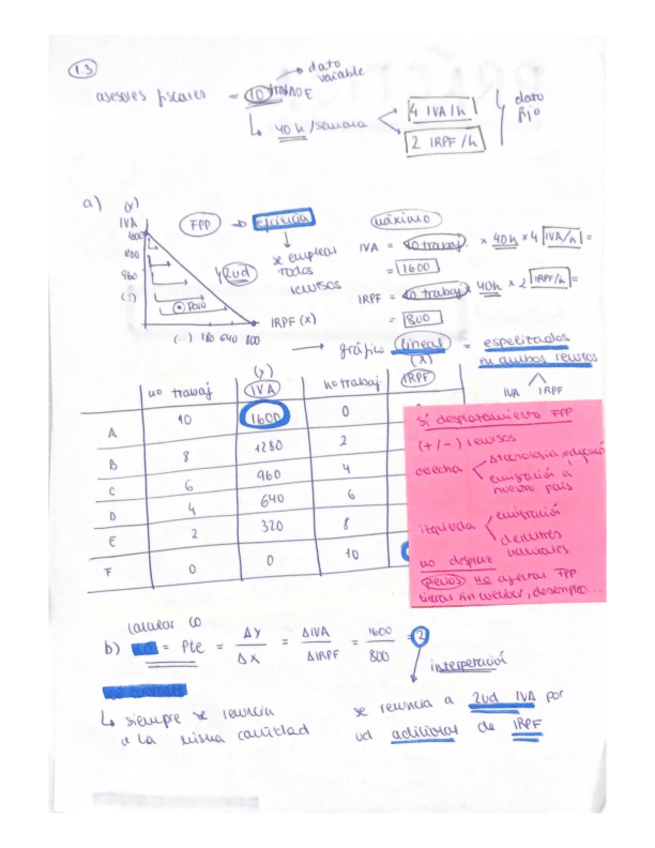 1.3
dato
variable
asesores fiscales = 10 trabADE
↳ 40 h /semana
4 IVA/h
2 IRPF/h
dato
fijo
a) (y)
IVA
FPP → eficiencia
↓
se emplean
todos
recursos
1280
960
(...)
Paro
IRPF (x)
(...) 180 640 800
máximo
IVA = 10 trabaj. × 40h × 4 IVA/h =
= 1600
IRPF = 10 trabaj × 40h × 2 IRPF/h =
= 800
→ gráfico lineal = espelizados
en ambos recursos
IVA IRPF
no trabaj (y) IVA no trabaj. (x) IRPF
A 10 1600 0
B 8 1280 2
C 6 960 4
D 4 640 6
E 2 320 8
F 0 0 10
Sí desplazamiento FPP
(+/-) recursos
derecha
Δtecnología, educació
emigración a
nuestro país
izquierda
emigración
desastres
naturales
no desplaz
no afectan FPP
b) = Pte = Δy / Δx = ΔIVA / ΔIRPF = 1600 / 800 = 2
↳ siempre se renuncia
a la misma cantidad
se renuncia a 2ud IVA por
ud adicional de IRPF